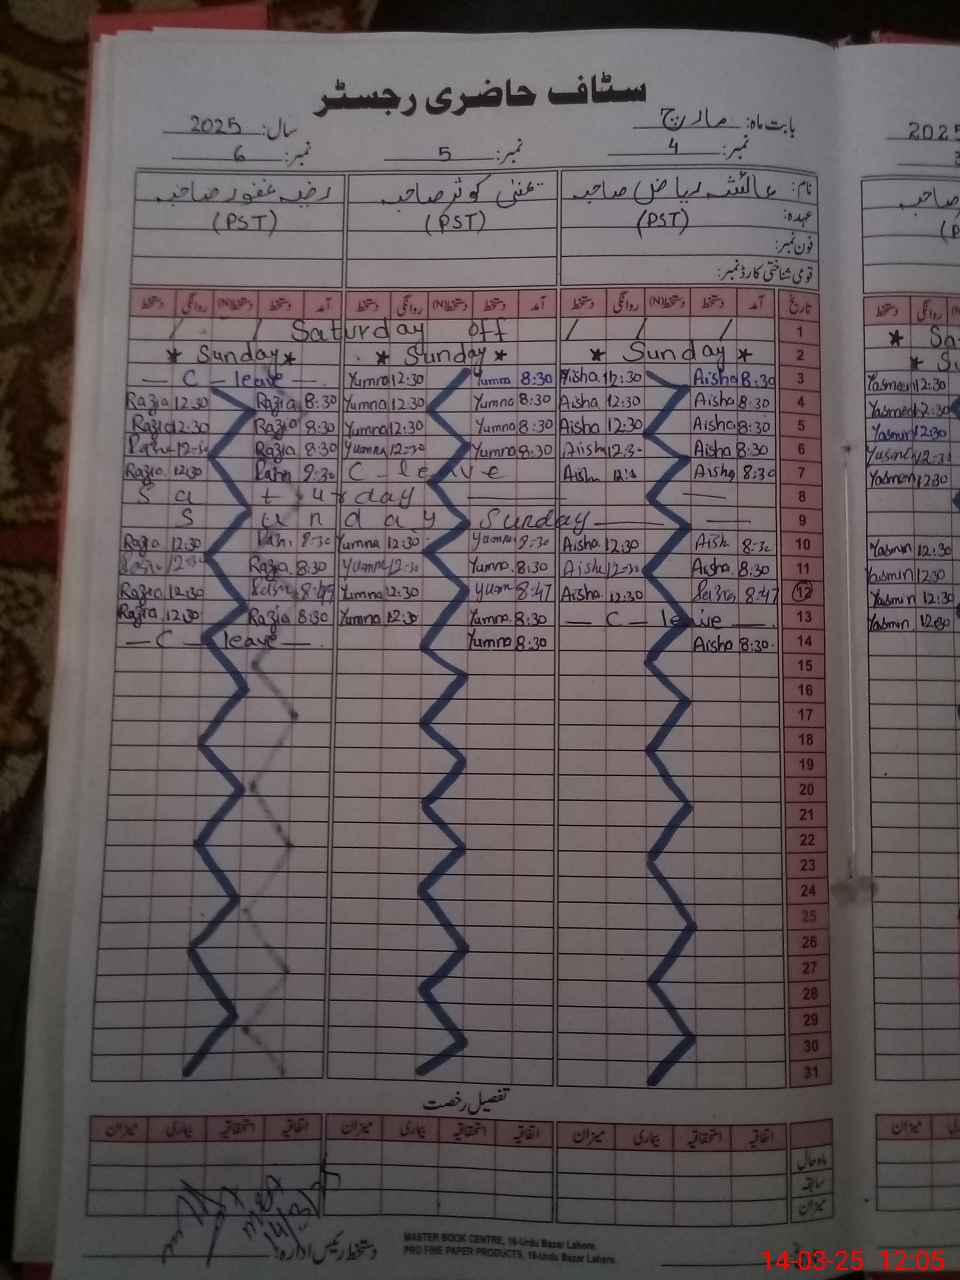 سٹاف حاضری رجسٹر
بابت ماہ: مارچ سال: 2025
نمبر: 4 نمبر: 5 نمبر: 6
نام: عائشہ ریاض صاحبہ یمنیٰ کوثر صاحبہ رضیہ غفور صاحبہ
عہدہ: (PST) (PST) (PST)
فون نمبر:
قومی شناختی کارڈ نمبر:
تاریخ آمد دستخط دستخط(N) روانگی دستخط آمد دستخط دستخط(N) روانگی دستخط آمد دستخط دستخط(N) روانگی دستخط
/ / Saturday off / / / 1
* Sunday * * Sunday * * Sunday * 2
— C — leave — Yumna 12:30 Yumna 8:30 Aisha 12:30 Aisha 8:30 3
Razia 12:30 Razia 8:30 Yumna 12:30 Yumna 8:30 Aisha 12:30 Aisha 8:30 4
Razia 12:30 Razia 8:30 Yumna 12:30 Yumna 8:30 Aisha 12:30 Aisha 8:30 5
12:30 Razia 8:30 Yumna 12:30 Yumna 8:30 Aisha 12:30 Aisha 8:30 6
Razia 12:30 8:30 C - leave Aisha Aisha 8:30 7
Saturday — — 8
Sunday Sunday — — 9
Razia 12:30 8:30 Yumna 12:30 Yumna 8:30 Aisha 12:30 Aish 8:30 10
12:30 Razia 8:30 Yumna 12:30 Yumna 8:30 Aisha 12:30 Aisha 8:30 11
Razia 12:30 Yumna 12:30 Yumna 8:47 Aisha 12:30 8:47 12
Razia 12:30 Razia 8:30 Yumna 12:30 Yumna 8:30 — C — leave — 13
— C — leave — Yumna 8:30 Aisha 8:30 14
15
16
17
18
19
20
21
22
23
24
25
26
27
28
29
30
31
تفصیل رخصت
اتفاقیہ استحقاقیہ بیماری میزان اتفاقیہ استحقاقیہ بیماری میزان اتفاقیہ استحقاقیہ بیماری میزان
ماہ حال
سابقہ
میزان
دستخط رئیس ادارہ:
MASTER BOOK CENTRE, 16-Urdu Bazar Lahore.
PRO FINE PAPER PRODUCTS, 16-Urdu Bazar Lahore.
2025
* Sa
Yasmeen 12:30
Yasmeen 12:30
Yasmin 12:30
Yasmin 12:30
Yasmeen 12:30
Yasmin 12:30
Yasmin 12:30
Yasmin 12:30
Yasmin 12:30
14-03-25 12:05